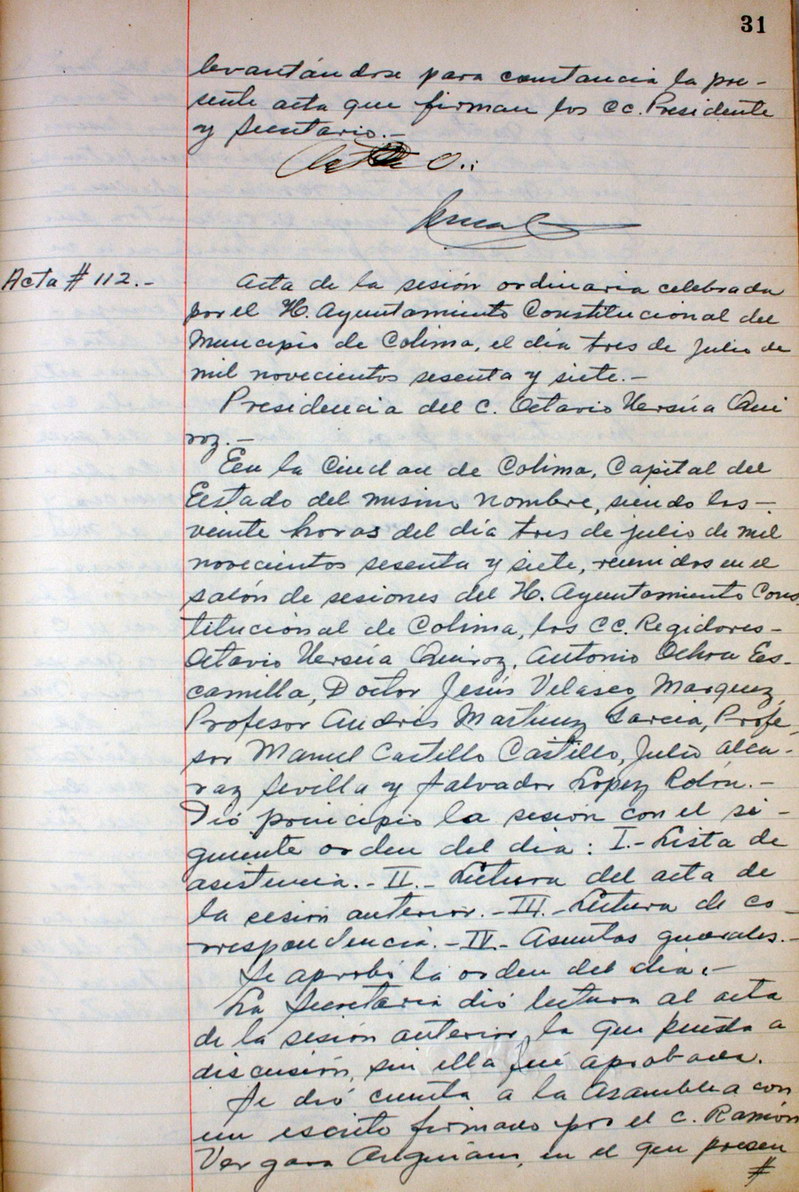 31
levantándose para constancia la pre-
sente acta que firman los CC. Presidente
y Secretario.-
Acta # 112.-
Acta de la sesión ordinaria celebrada
por el H. Ayuntamiento Constitucional del
Municipio de Colima, el día tres de Julio de
mil novecientos sesenta y siete.-
Presidencia del C. Octavio Ursúa Qui
roz.-
En la Ciudad de Colima, Capital del
Estado del mismo nombre, siendo las-
veinte horas del día tres de julio de mil
novecientos sesenta y siete, reunidos en el
salón de sesiones del H. Ayuntamiento Cons
titucional de Colima, los CC. Regidores-
Octavio Ursúa Quiroz, Antonio Ochoa Es-
camilla, Doctor Jesús Velasco Marquez,
Profesor Andrés Martínez García, Profe-
sor Manuel Castillo Castillo, Julio Alca-
raz Sevilla y Salvador López Rolón.-
Dió principio la sesión con el si-
guiente orden del día: I.- Lista de
asistencia.- II.- Lectura del acta de
la sesión anterior.- III.- Lectura de co-
rrespondencia.- IV.- Asuntos generales.-
Se aprobó la orden del día.-
La Secretaría dió lectura al acta
de la sesión anterior, la que puesta a
discusión, sin ella fué aprobada.
Se dió cuenta a la Asamblea con
un escrito firmado por el C. Ramón
Vergara Anguiano, en el que presen
#